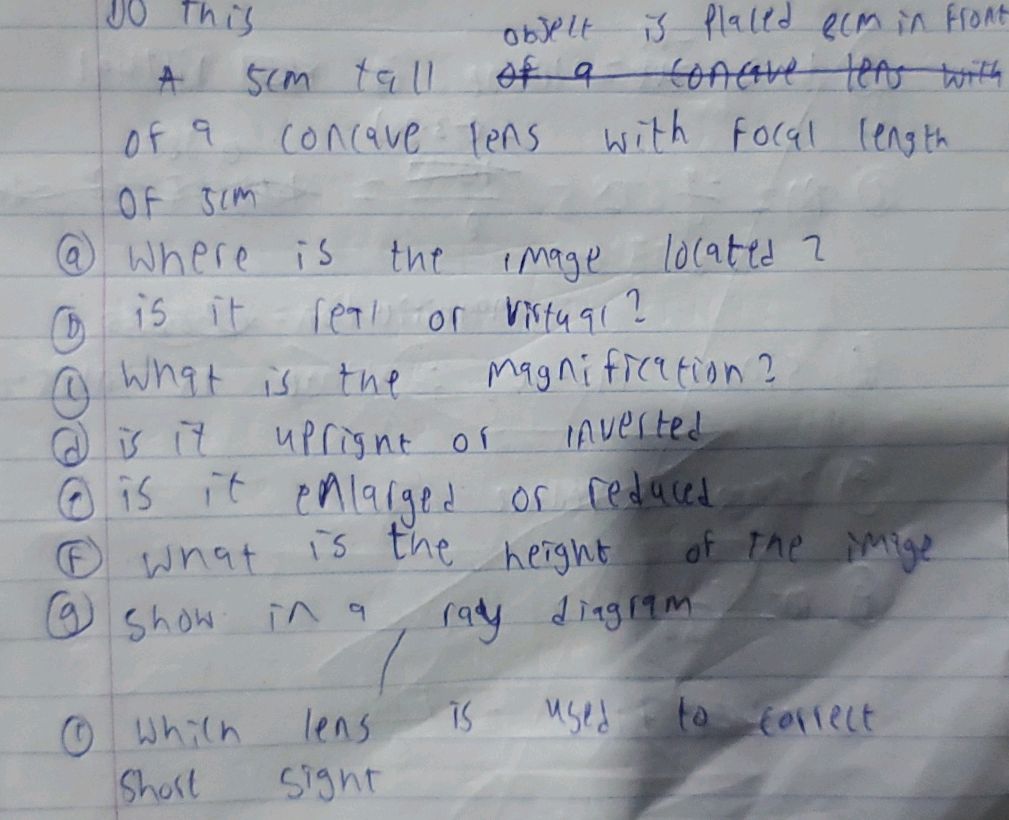 DO This
object is Placed 8cm in Front
A 5cm tall of a concave lens with
of a concave lens with Focal length
OF 5cm
(a) where is the image located?
(b) is it real or virtual?
(c) What is the Magnification?
(d) is it upright or inverted
(e) is it enlarged or reduced
(F) what is the height of the image
(g) show in a ray diagram
(1) which lens is used to correct
short sight